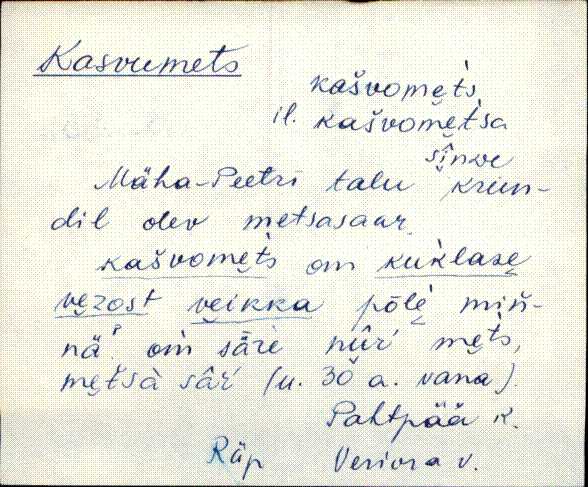 Kasvumets
kašvomet̀s,
il. kašvomèt̀sa
sı̬̄nwe
Mäha-Peetri talu krun-
dil olev metsasaar.
kašvomèts om kuklase
vezost veikka pōlè miń-
nä? om säre nūŕi mets,
mètsà sāŕ (u. 30 a. vana).
Pahtpää k.
Räp Veriora v.